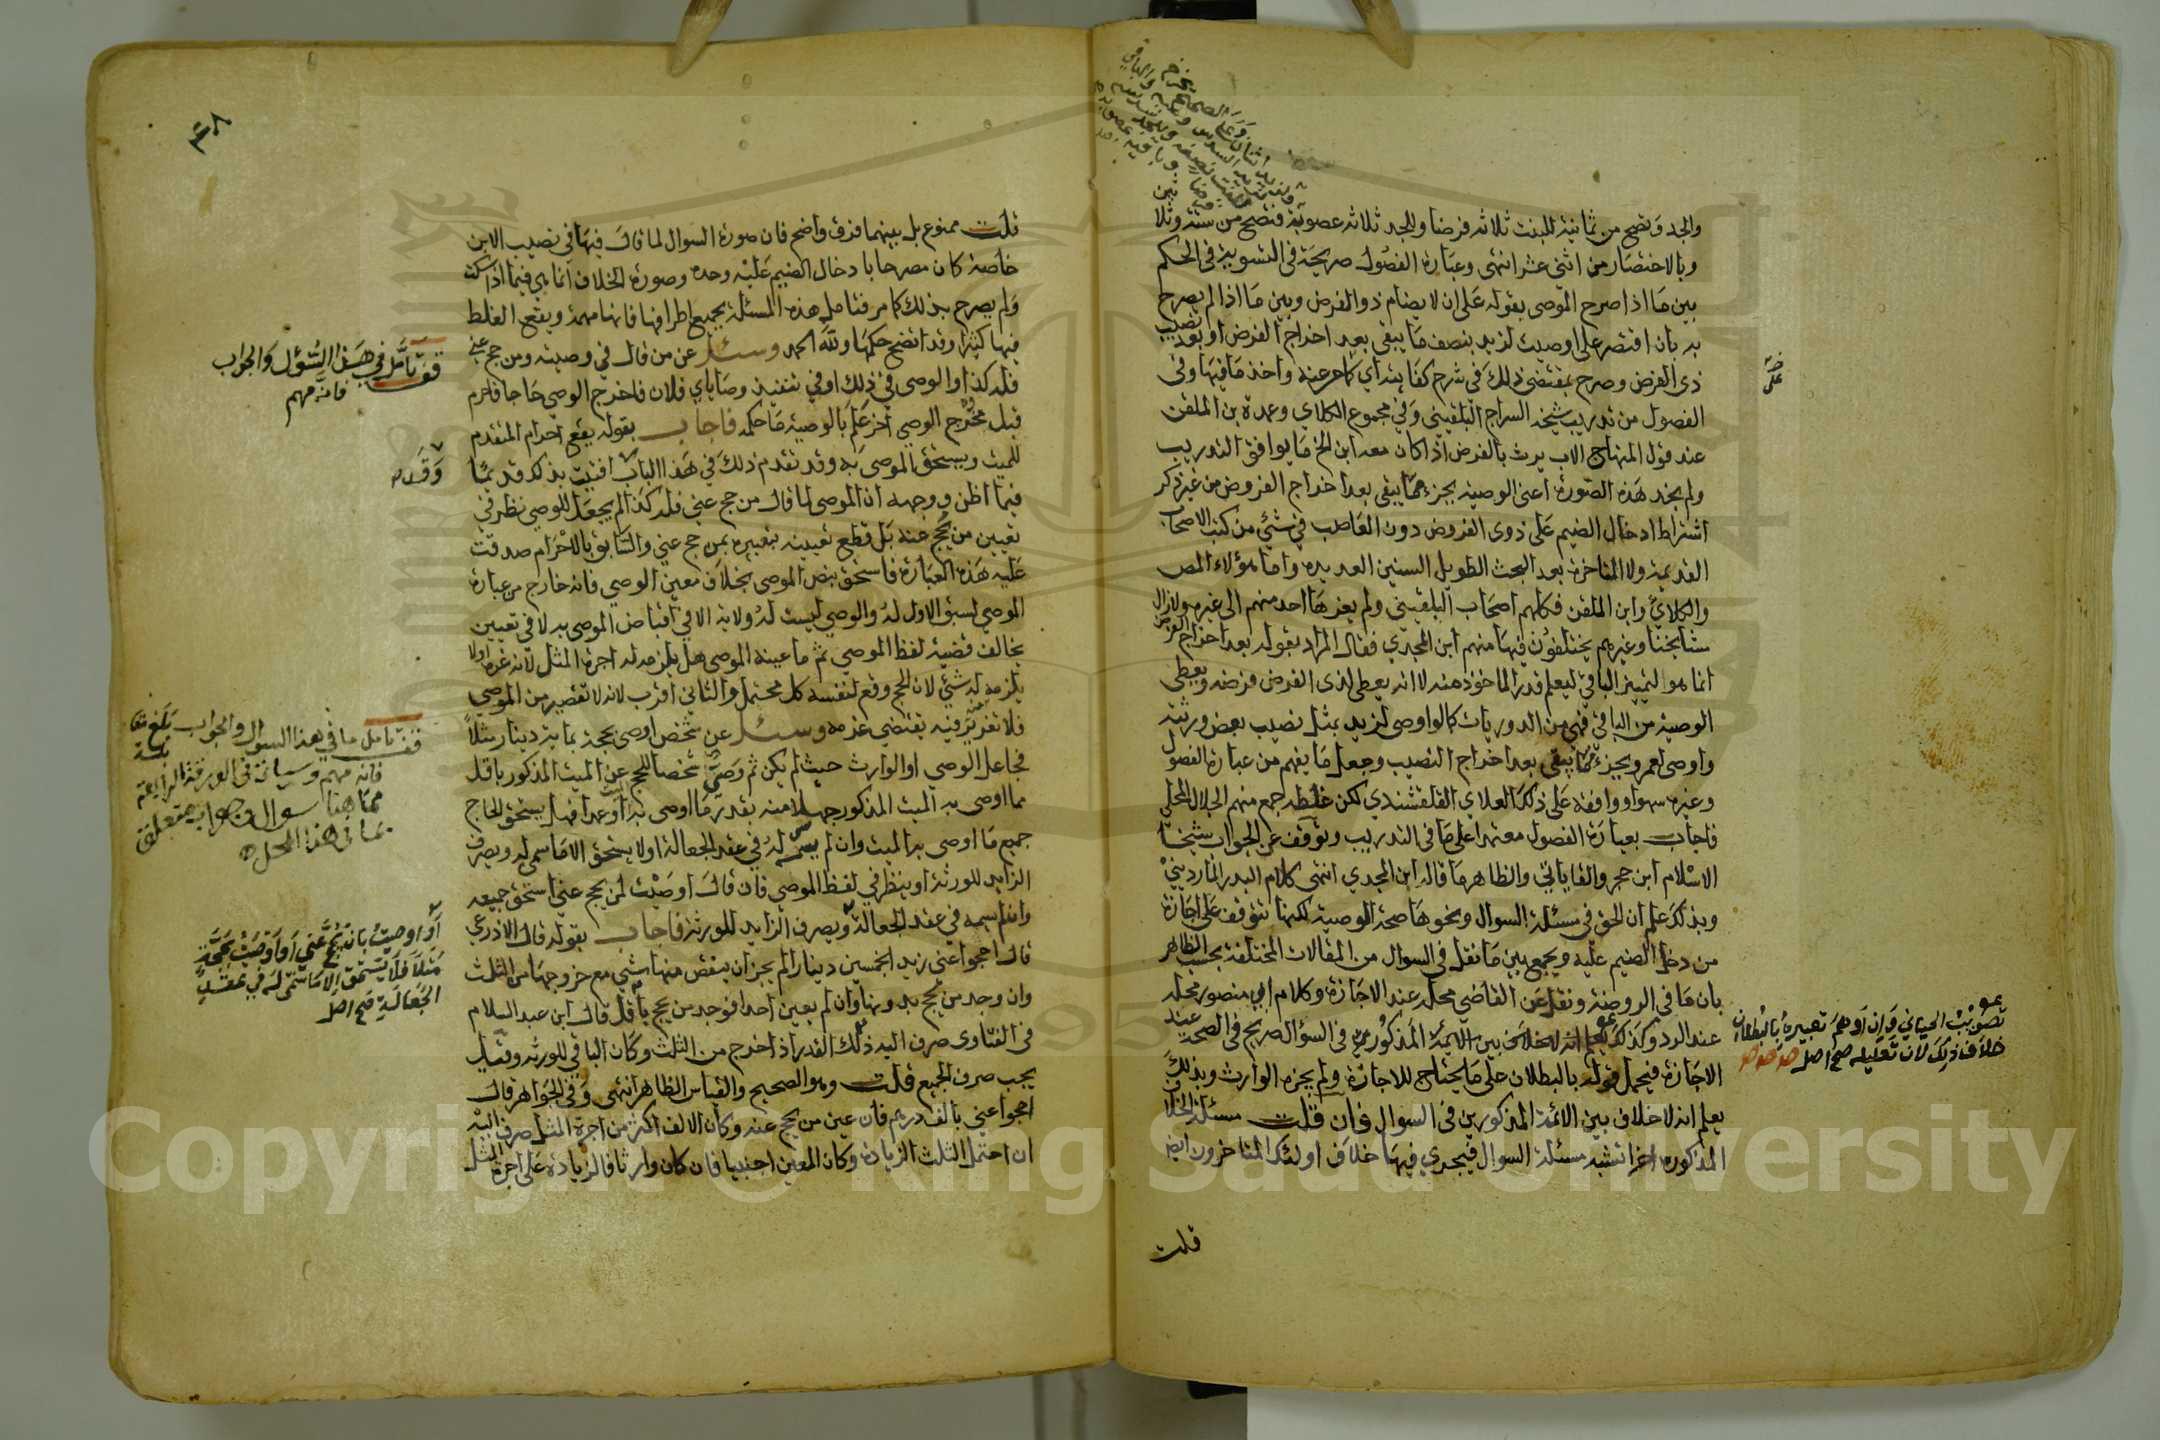 والجد وتصح من ثمانية للبنت ثلاثة فرضا وللجد ثلاثة عصوبة فتصح من ستة وثلاثين
وبالاختصار من اثنى عشر انتهى وعبارة الفصول صريحة فى التسوية فى الحكم
بين ما اذا صرح الموصى بقوله على ان لا يضام ذو الفرض وبين ما اذا لم يصرح
به بان اقتصر على اوصيت لزيد بنصف ما يبقى بعد اخراج الفرض او بعد نصيب
ذى الفرض وصرح بمقتضى ذلك فى شرح كفايته اى كما مر عنه واخذ ما فيها وفى
الفصول من تدريب شيخه السراج البلقينى وفى مجموع الكلاى وعمدة بن الملقن
عند قول المنهاج الاب يرث بالفرض اذا كان معه ابن الخ ما يوافق التدريب
ولم يجد هذه الصورة اعنى الوصية بجزء مما يبقى بعد اخراج الفروض من غير ذكر
اشتراط ادخال الضيم على ذوى الفروض دون العاصب فى شئ من كتب الاصحاب
القديمة ولا المتاخرة بعد البحث الطويل السنين العديدة واما هؤلاء المص
والكلاى وابن الملقن فكلهم اصحاب البلقينى ولم يعزها احد منهم الى غيره ولازال
مشايخنا وغيرهم يختلفون فيها منهم ابن المجدي فقال المراد بقوله بعد اخراج الفرض
انما هو لتمييز الباقى ليعلم قدر الماخوذ منه لا انه يعطى لذى الفرض فرضه ويعطى
الوصية من الباقى فهى من الدوريات كما لو اوصى لزيد بمثل نصيب بعض ورثته
واوصى لعمرو بجزء مما يبقى بعد اخراج النصيب وجعل ما يفهم من عبارة الفصول
وغيره سهوا ووافقه على ذلك العلاى القلقشندى لكن غلطه جمع منهم الجلال المحلى
فاجاب بعبارة الفصول معتمدا على ما فى التدريب وتوقف عن الجواب شيخنا
الاسلام ابن حجر والقاياتى والظاهر ما قاله ابن المجدي انتهى كلام البدر الماردينى
وبذلك علم ان الحق فى مسئلة السوال ونحوها صحة الوصية لكنها تتوقف على اجازة
من دخل الضيم عليه ويجمع بين ما نقل فى السوال من المقالات المختلفة بحسب الظاهر
بان ما فى الروضة ونقل عن القاضي محله عند الاجازة وكلام ابى منصور محله
عند الرد وكذلك يعلم انه لا خلاف بين الايمة المذكورين فى السؤال صريح فى الصحة عند
الاجازة فيحمل قوله بالبطلان على ما يحتاج للاجازة ولم يجزه الوارث وبذلك
يعلم انه لا خلاف بين الائمة المذكورين فى السوال فان قلت مسئلة الخلاف
المذكوره اخرا تشبه مسئلة السوال فيجري فيها خلاف اولئك المتاخرون ايضا
قلت
تصويب
خلاف ذلك لان تعليله صح اصل
قلت ممنوع بل بينهما فرق واضح فان صورة السوال لما قال فيها فى نصيب الابن
خاصة كان مصرحا بادخال الضيم عليه وحده وصورة الخلاف انما هى فيما اذا سكت
ولم يصرح بذلك كما مر فتامل هذه المسئلة بجميع اطرافها فانها مهمة ويقع الغلط
فيها كثيرا وقد اتضح حكمها ولله الحمد وسئل عن من قال في وصيته ومن حج عني
فله كذا والوصي في ذلك او في تنفيذ وصاياي فلان فاخرج الوصي حاجا فاحرم
قبل مخرج الوصي اخر علم بالوصية ما حكمه فاجاب بقوله يقع احرام المتقدم
للميت ويستحق الموصى به وقد تقدم ذلك في هذا الباب افتيت بذلك قديما
فيما اظن ووجهه ان الموصى لما قال من حج عني فله كذا لم يجعل للوصي نظر في
تعيين من يحج عنه بل قطع تعيينه بتعبيره بمن حج عني والسابق بالاحرام صدقت
عليه هذه العبارة فاستحق بنص الموصى بخلاف معين الوصي فانه خارج من عبارة
الموصي لسبق الاول له والوصي ليست له ولاية الا في اقباض الموصى به لا في تعيين
يخالف قضية لفظ الموصي ثم ما عينه الموصى هل يلزمه له اجرة المثل لانه غره او لا
يلزمه له شئ لان الحج وقع لنفسه كل محتمل والثاني اقرب لانه لا تقصير من الموصي
فلا تغرير فيه يقتضي غرمه وسئل عن شخص اوصى بحجة بماية دينار مثلا
فجاعل الوصي او الوارث حيث لم يكن ثم وصي شخصا للحج عن الميت المذكور باقل
مما اوصى به الميت المذكور جهلا منه بقدر ما اوصى به او عمدا فهل يستحق الحاج
جميع ما اوصى به الميت وان لم يسم له في عقد الجعالة او لا يستحق الا ما سمى له ويصرف
الزايد للورثة او ينظر في لفظ الموصي فان قال اوصيت لمن يحج عني استحق جميعه
وان لم يسمه في عقد الجعالة ويصرف الزايد للورثة فاجاب بقوله قال الاذرعي
قال احجوا عني زيد الخمسين دينارا لم يجز ان ينقص منها شي مع خروجها من الثلث
وان وجد من يحج بدونها وان لم يعين احدا فوجد من يحج باقل قال ابن عبد السلام
فى الفتاوى صرف اليه ذلك القدر اذا خرج من الثلث وكان الباقي للورثه وقيل
يجب صرف الجميع قلت وهو الصحيح والقياس الظاهر انتهى وفي الجواهر قال
احجوا عني بالف درهم فان عين من يحج عنه وكان الالف اكثر من اجرة المثل صرف اليه
ان احتمل الثلث الزيادة وكان المعين اجنبيا فان كان وارثا فالزيادة على اجرة المثل
٤٨
قف تامل في هذا السُّؤل والجواب
فانه مهم
وقد
قف تامل ما في هذا السوال والجواب
فانه مهم وسياتى فى الورقة الرابعة
مما هنا سوال وجواب متعلق
بما فى هذا المحل
او اوصيت بان يحج عني او اوصيت بحجة
مثلا فلا يستحق الا ما سمى له في عقد
الجعالة صح اصل
Copyright © King Saud University